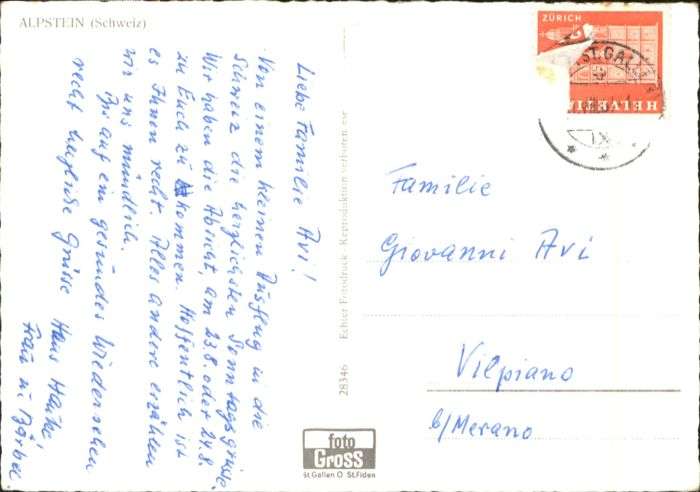 ALPSTEIN (Schweiz)
Liebe Familie Avi!
Von einem kleinen Ausflug in die
Schweiz die herzlichsten Sonntagsgrüsse.
Wir haben die Absicht, am 23.8. oder 24.8.
zu Euch zu kommen. Hoffentlich ist
es Ihnen recht. Alles andere erzählen
wir uns mündlich.
Bis auf ein gesundes Wiedersehen
recht herzliche Grüsse Hans
Frau u. Bärbel
28346 Echter Fotodruck · Reproduktion verboten
foto
GROSS
St.Gallen O St.Fiden
ZÜRICH
ST. GALLEN
HELVETIA
Familie
Giovanni Avi
Vilpiano
b/Merano